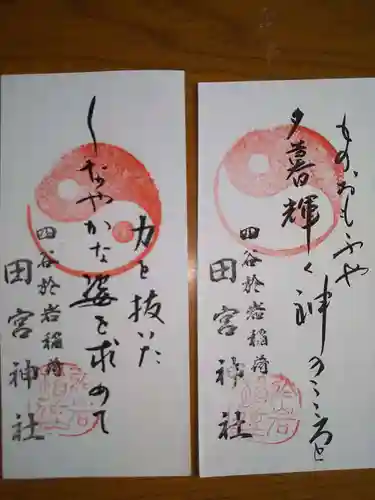 ものおもふや
夕暮輝く神のこころと
四谷於岩稲荷
田宮神社
力を抜いた
しなやかな姿を求めて
四谷於岩稲荷
田宮神社